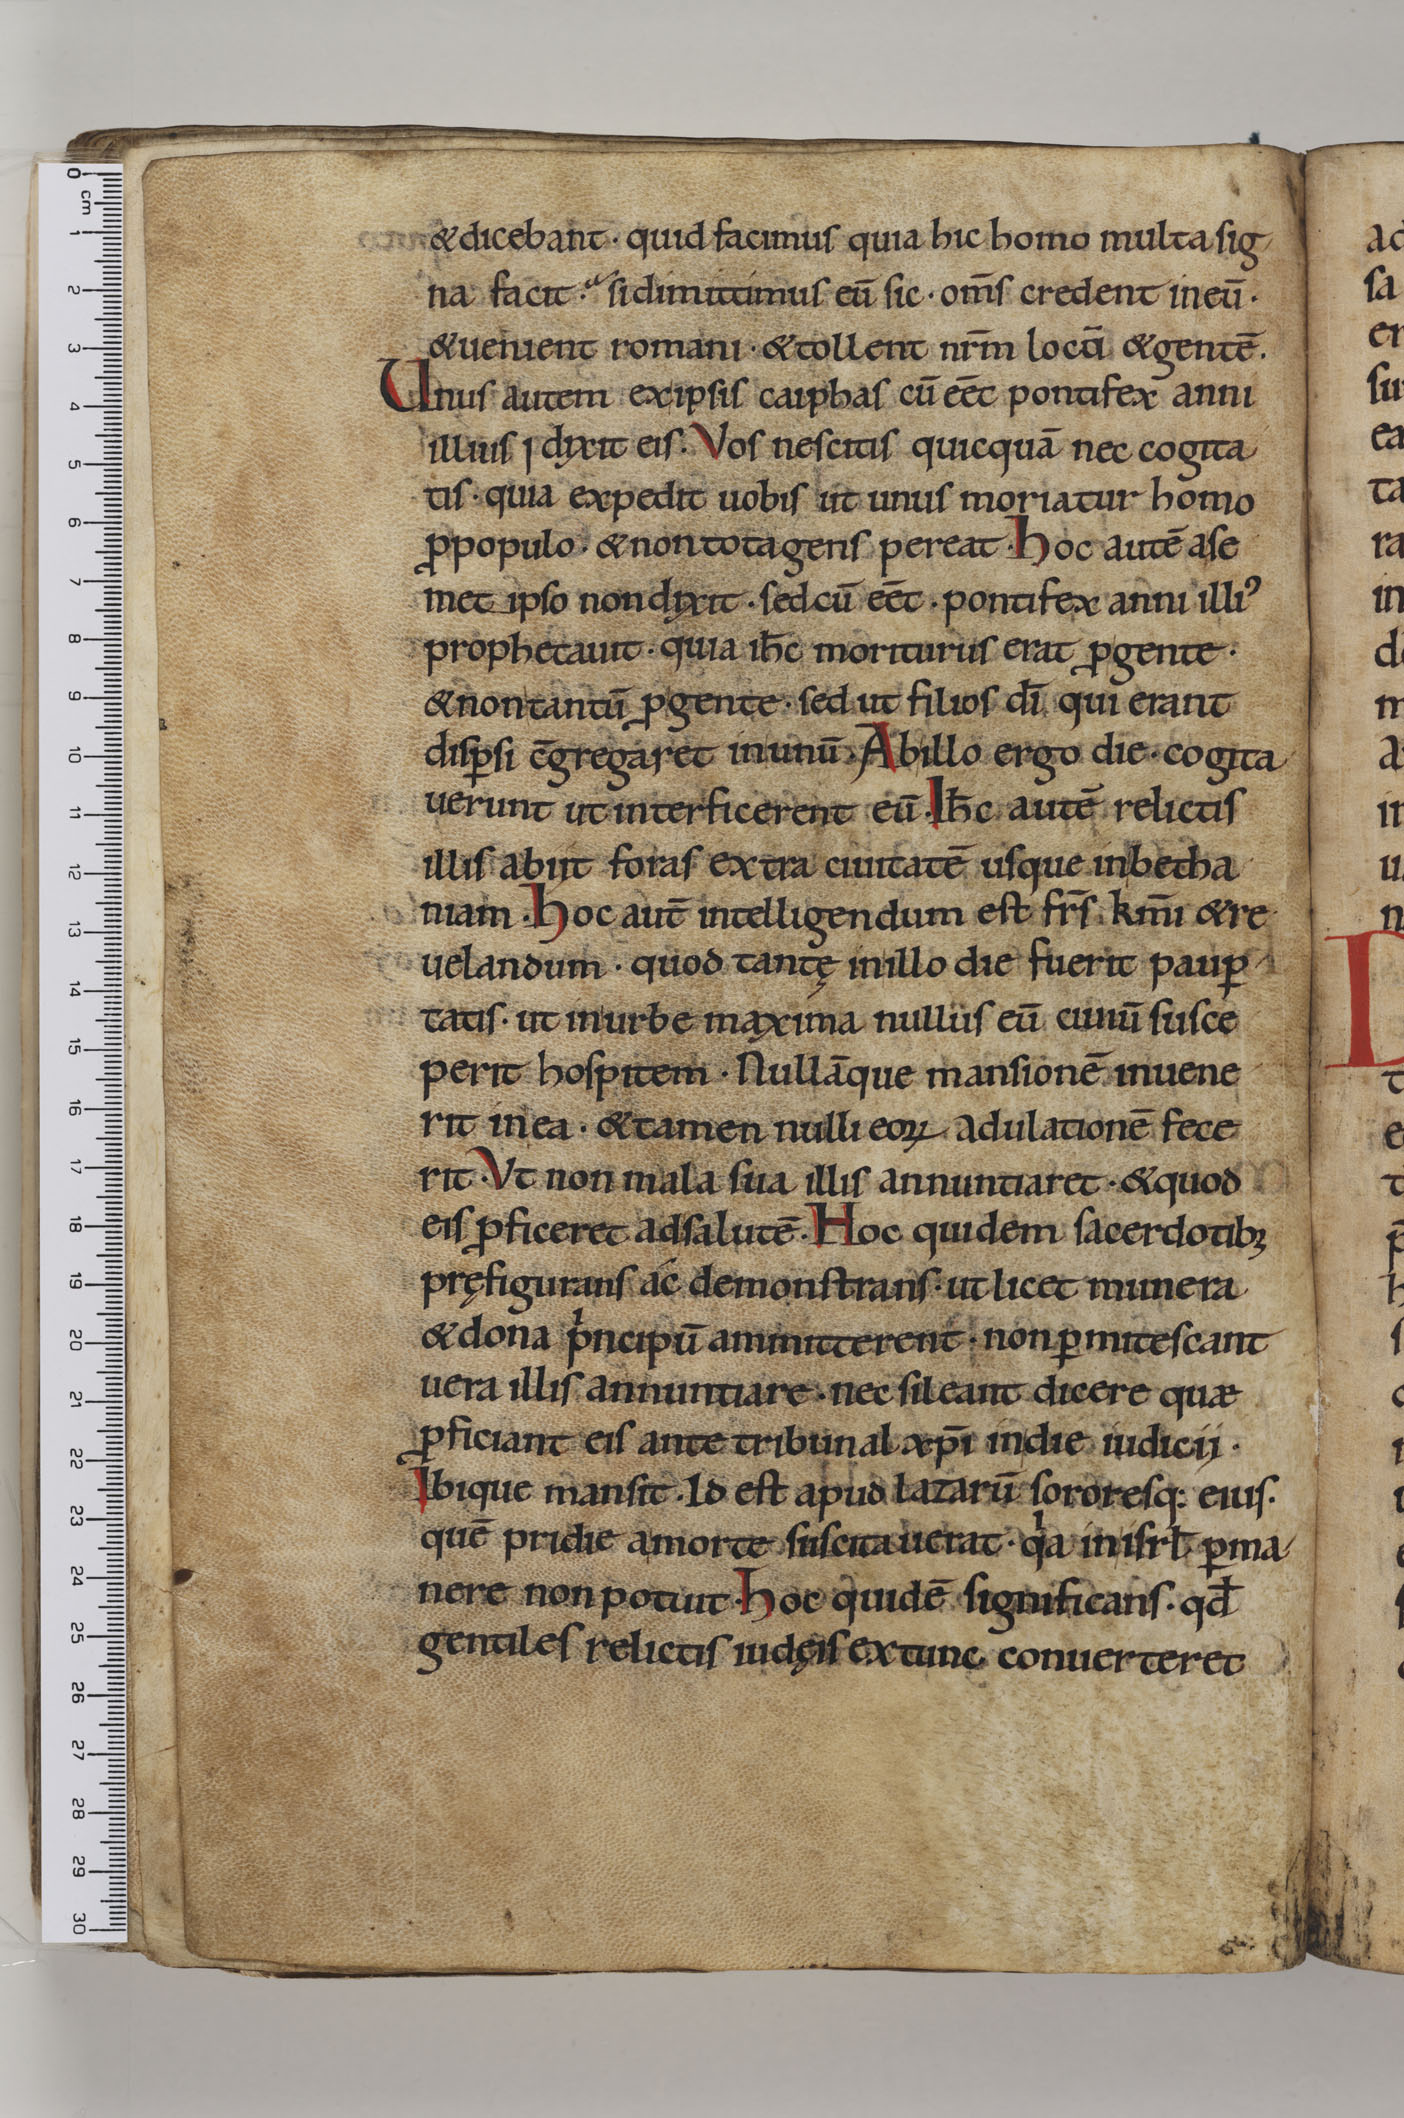 &dicebant · quid facimus quia hic homo multa sig
na facit · si dimittimus eū sic · om̄s credent in eū ·
&uenient romani · &tollent nr̄m locū &gentē .
Unus autem ex ipsis caiphas cū eēc pontifex anni
illius dixit eis . Vos nescitis quicquā nec cogita
tis · quia expedit uobis ut unus moriatur homo
ꝓpopulo · &non tota gens pereat . hoc autē a se
met ipso non dixit · sed cū eēt · pontifex anni illiꝰ
prophetauit · quia ih̄c moriturus erat ꝓgente ·
&non tantū ꝓgente · sed ut filios dī qui erant
disꝑsi c̄gregaret in unū . Ab illo ergo die · cogita
uerunt ut interficerent eū . Ih̄c autē relictis
illis abiit foras extra ciuitatē usque in betha
niam . hoc aut̄ intelligendum est fr̄s km̄i &re
uelandum · quod tantę in illo die fuerit pauꝑ
tatis · ut in urbe maxima nullus eū ciuiū susce
perit hospitem · Nullāque mansionē inuene
rit in ea · &tamen nulli eoꝝ adulationē fece
rit . Vt non mala sua illis annuntiaret · &quod
eis ꝓficeret ad salutē . Hoc quidem sacerdotibꝫ
pręfigurans ac demonstrans · ut licet munera
&dona pͥncipū ammitterent · non ꝑmitescant
uera illis annuntiare · nec sileant dicere quæ
ꝓficiant eis ante tribunal xp̄i in die iudicii ·
Ibique mansit . Id est apud lazarū sororesq: eius .
quē pridie a morte suscitauerat · qͥa in isrl̄ ꝑma
nere non potuit . hoc quidē significans · qd̄
gentiles relictis iudęis ex tunc conuerteret